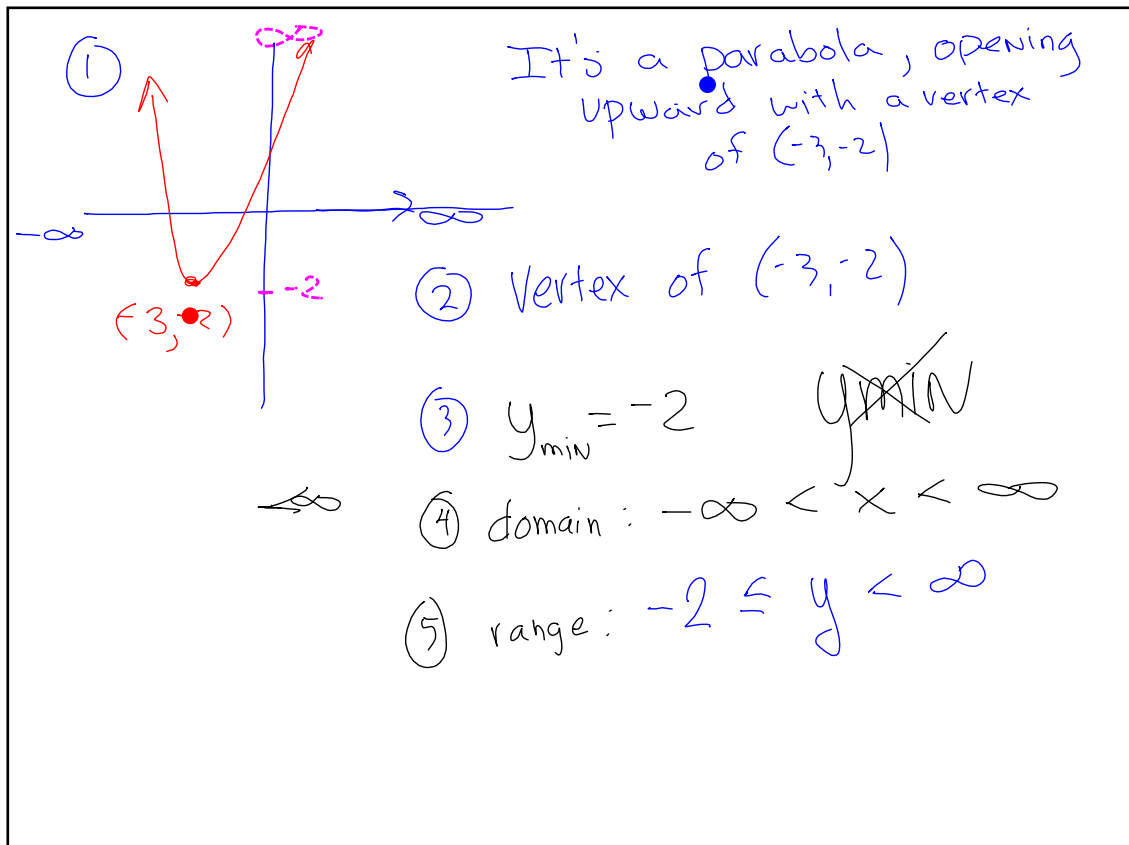 ①
∞
It's a parabola, opening
upward with a vertex
of (-3,-2)
-∞
∞
-2
(-3,-2)
② Vertex of (-3,-2)
③ y_min = -2
ymin
-∞
④ domain: -∞ < x < ∞
⑤ range: -2 ≤ y < ∞